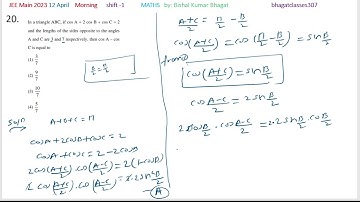 JEE Main 2023 12 April Morning shift -1 MATHS by: Bishal Kumar Bhagat bhagatclasses307
20.
In a triangle ABC, if cos A + 2 cos B + cos C = 2
and the lengths of the sides opposite to the angles
A and C are 3 and 7 respectively, then cos A – cos
C is equal to
Soln A+B+C = π
cosA + 2cosB + cosC = 2
cosA + cosC = 2 - 2cosB
2cos(A+C)/2 . cos(A-C)/2 = 2(1-cosB)
2 cos(A+C)/2 . cos(A-C)/2 = 2.2sin²B/2
A
A+C/2 = π/2 - B/2
cos(A+C)/2 = cos(π/2 - B/2) = sinB/2
from A
cos(A+C)/2 = sinB/2
cos A-C/2 = 2sinB/2
2cosB/2 . cos A-C/2 = 2.2sinB/2 . cosB/2